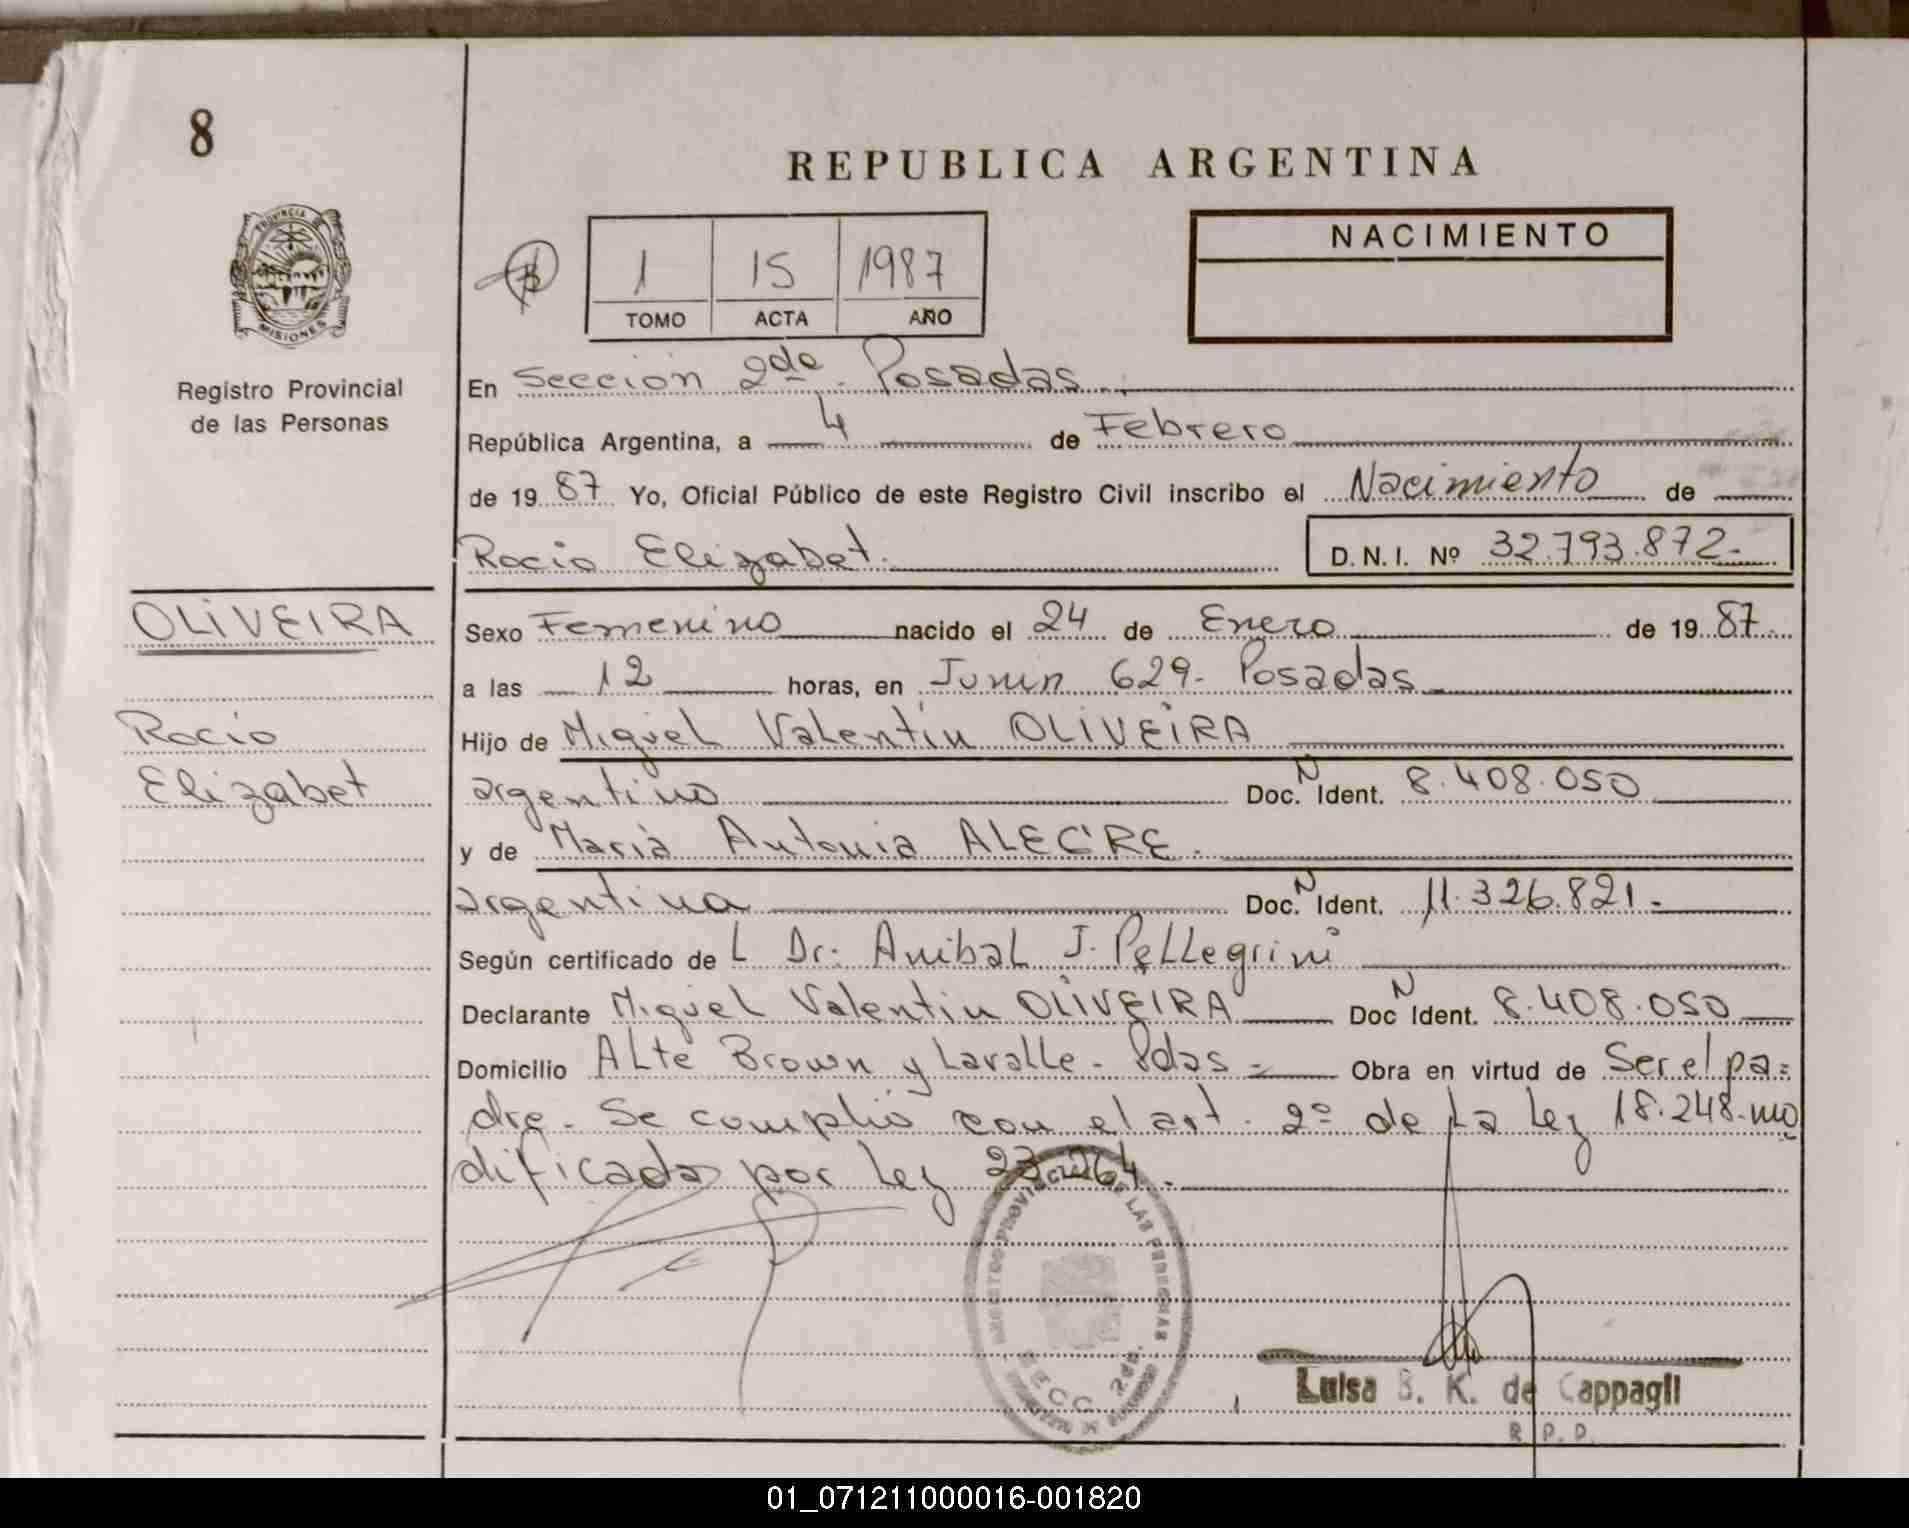 8
REPUBLICA ARGENTINA
PROVINCIA DE
MISIONES
Registro Provincial
de las Personas
1 15 1987
TOMO ACTA AÑO
NACIMIENTO
En Sección 2da. Posadas
República Argentina, a 4 de Febrero
de 19 87 Yo, Oficial Público de este Registro Civil inscribo el Nacimiento de
Rocio Elizabet. D.N.I. Nº 32.793.872.-
OLIVEIRA
Rocio
Elizabet
Sexo Femenino nacido el 24 de Enero de 19 87.
a las 12 horas, en Junin 629- Posadas
Hijo de Miguel Valentin OLIVEIRA
argentino Doc. N Ident. 8.408.050
y de Maria Antonia ALEGRE.
argentina Doc. N Ident. 11.326.821.-
Según certificado de L Dr. Anibal J. Pellegrini
Declarante Miguel Valentin OLIVEIRA Doc N Ident. 8.408.050
Domicilio Alte Brown y Lavalle - Pdas = Obra en virtud de Ser el pa=
dre. Se complió con el art. 2º de La Ley 18.248-mo
dificada por Ley 23.264.
REGISTRO PROVINCIAL DE LAS PERSONAS
SECC. 2da.
Luisa S. K. de Cappagli
R.P.P.
01_071211000016-001820